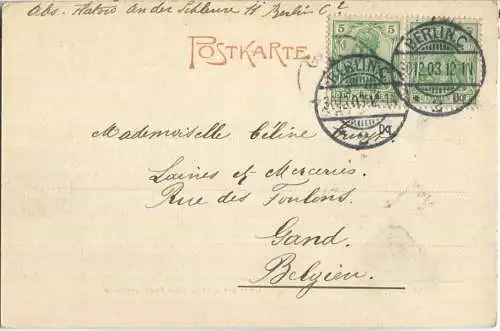 Abs. Hatvó An der Schleuse 11 Berlin C 2
POSTKARTE
5 5
BERLIN.C.
BERLIN.C.
12.03.12-1N
Mademoiselle Céline
Laines et Merceries.
Rue des Foulons.
Gand.
Belgien.